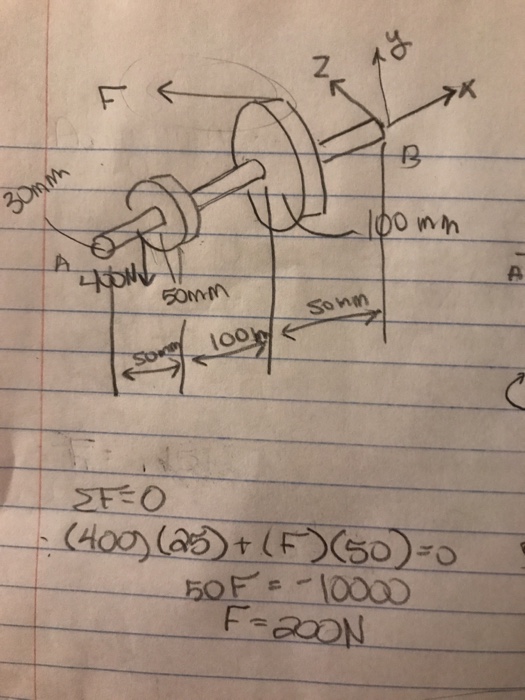 y
Z
F
X
B
30mm
100 mm
A
400N
50mm
50mm
50mm
100m
A
ΣF=0
(400)(25)+(F)(50)=0
50F = -10000
F=200N